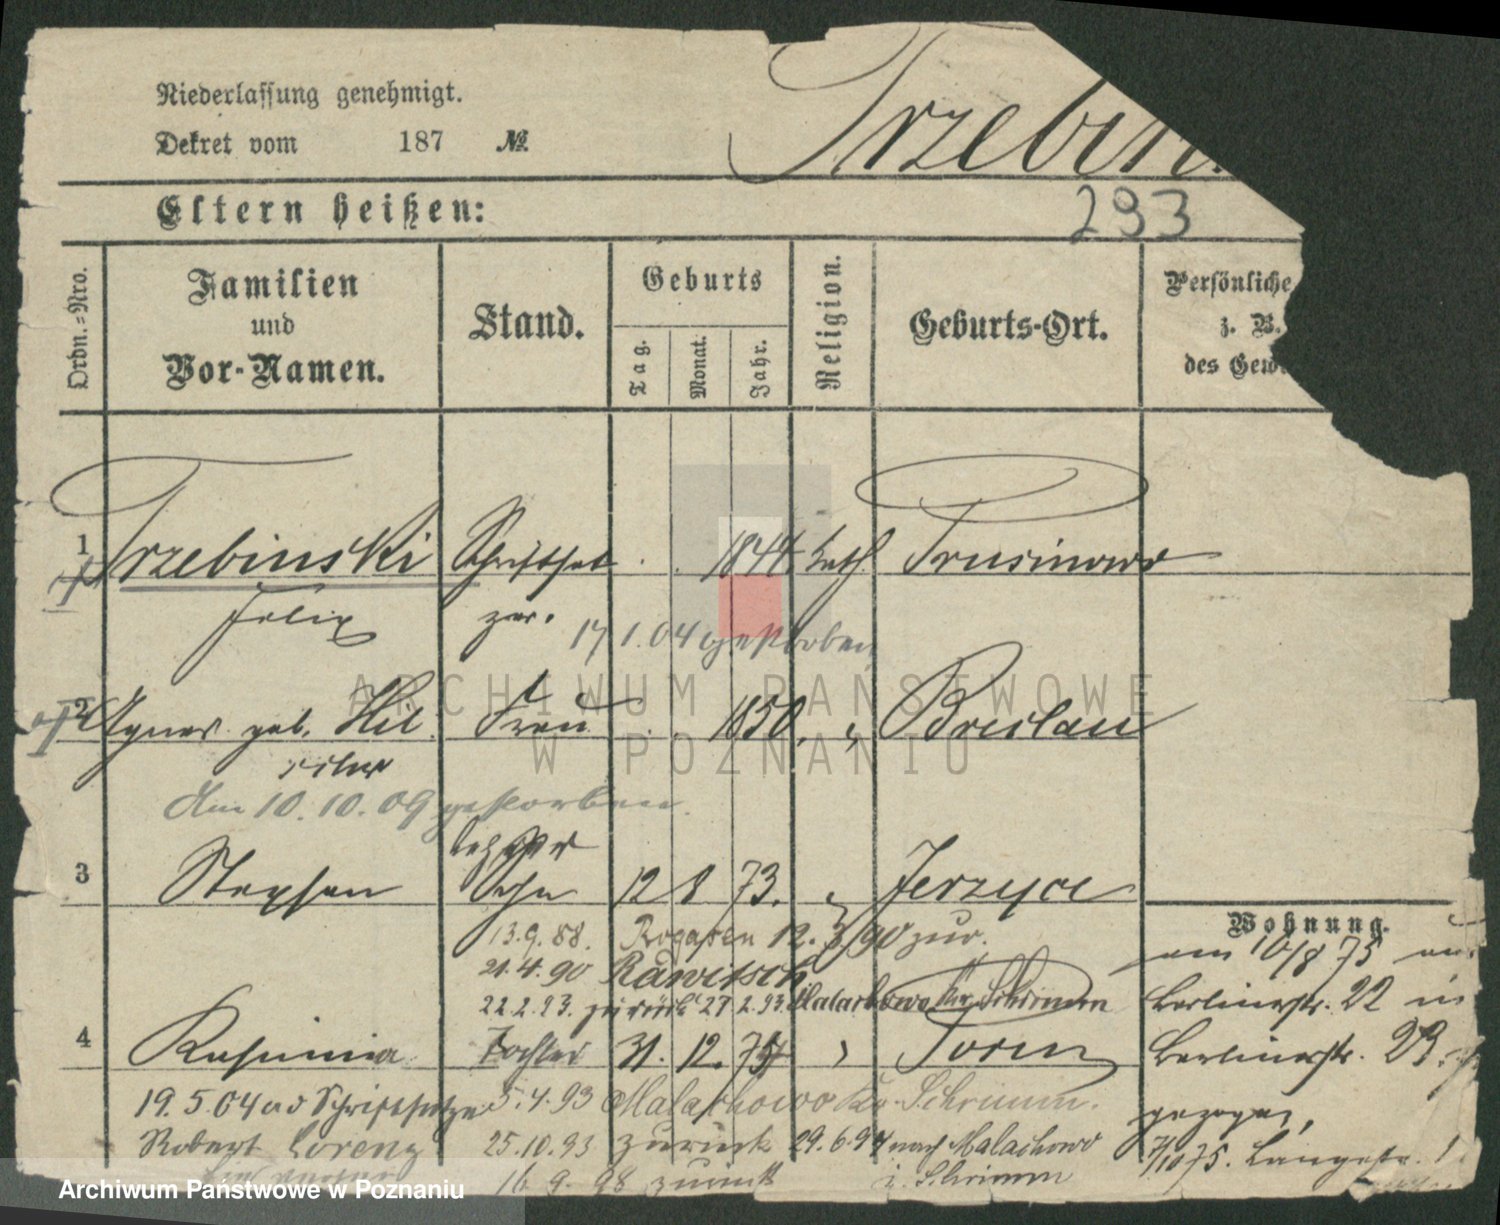 Niederlassung genehmigt.
Dekret vom 187 №
Trzebin
293
Eltern heißen:
Ordn.-Nro.
Familien
und
Vor-Namen.
Stand.
Geburts
Tag.
Monat.
Jahr.
Religion.
Geburts-Ort.
Persönliche
z. B.
des Gew
1 Trzebinski Schriftset 1844 kath. Trusinowo
Felix zer.
17 1.04 gestorben
2 Agnes geb. Hil Frau 1850. " Breslau
scher
Am 10.10.09 gestorben.
3 Stephan Sohn 12 8 73. " Jerzyce
Wohnung.
13.9.88. Rogasen 12.3/90 zur.
am 10/8 75 au
21.4.90 Rawitsch
22.2.93. zurück 27 2.93. Malachowo Kr. Schrimm
Berlinerstr. 22 in
4 Kasimira Tochter 31. 12. 75 " Posen
Berlinerstr. 23.
19.5.04 Schriftsetzer 5.4.93 Malachowo Kr. Schrimm.
gezogen,
Robert Lorenz 25.10.93 zurück 29.6.94 nach Malachowo
1/10 75. Langestr. 1
16. 9. 98 zurück i. Schrimm
ARCHIWUM PAŃSTWOWE
W POZNANIU
Archiwum Państwowe w Poznaniu